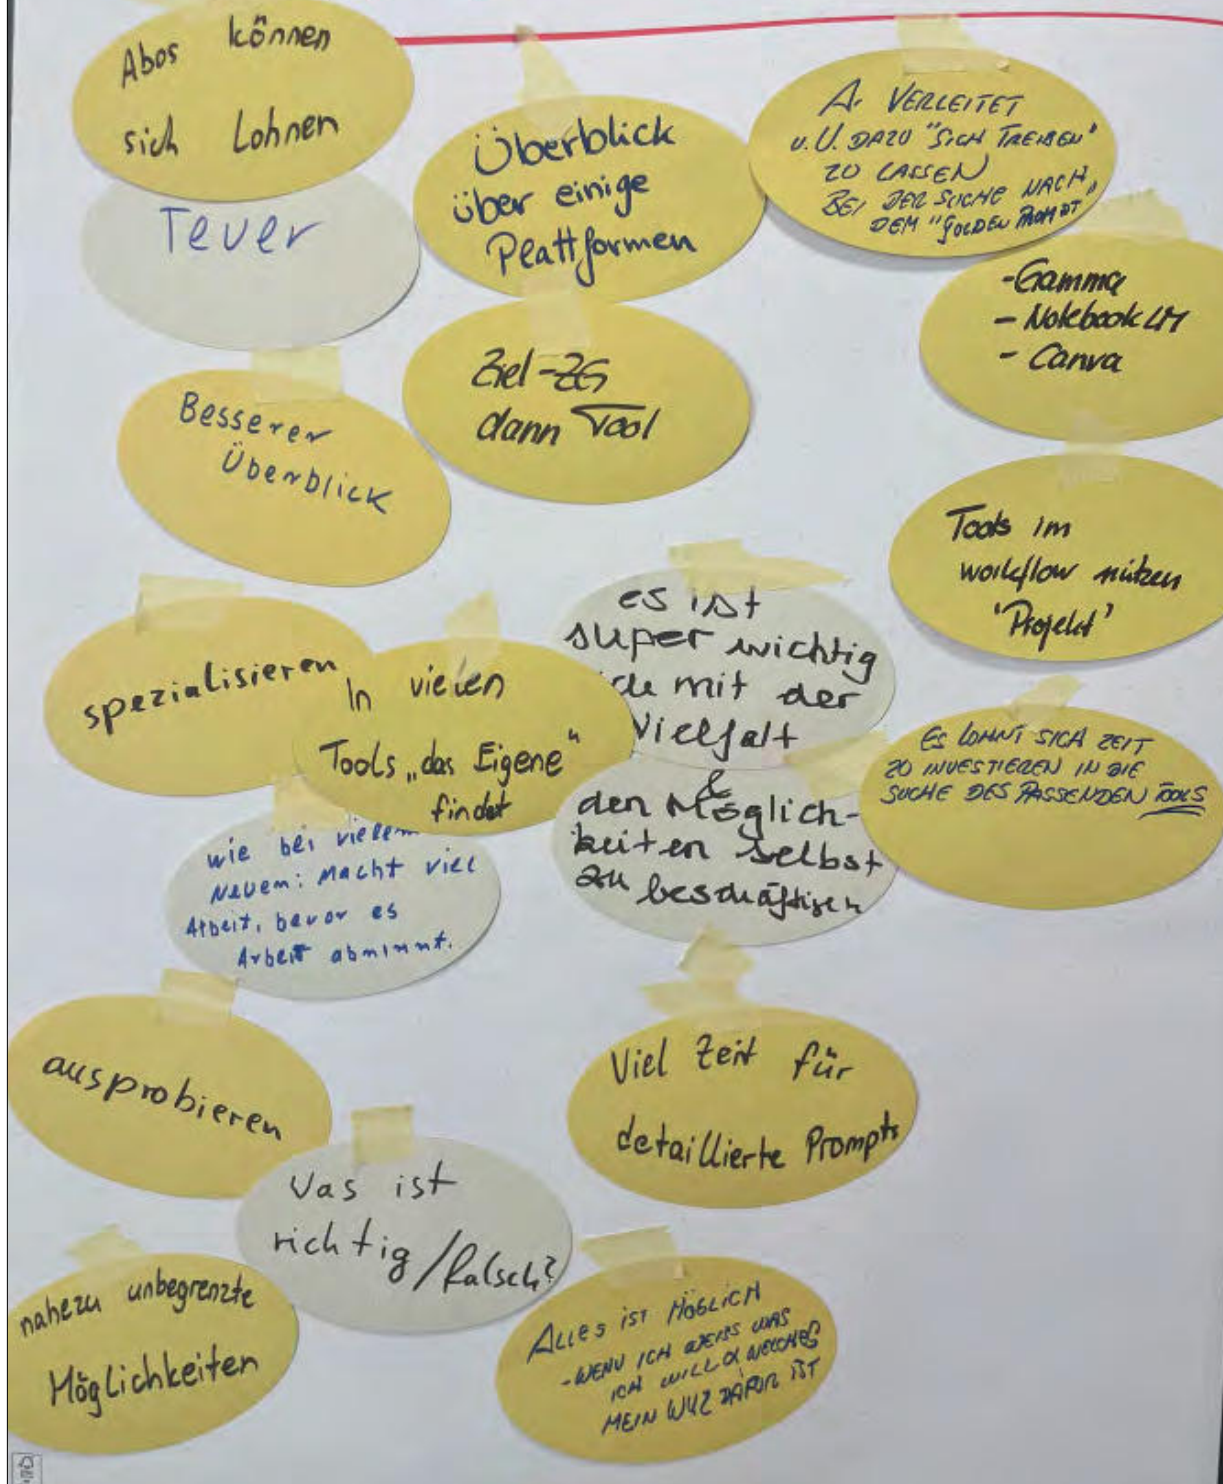 Abos können
sich Lohnen
Teuer
Überblick
über einige
Plattformen
A. VERLEITET
u.U. DAZU "SICH TREIBEN"
ZU LASSEN
BEI DER SUCHE NACH
DEM "GOLDEN PROMPT"
-Gamma
- Notebook LM
- Canva
Ziel-ZG
dann Tool
Besserer
Überblick
Tools im
workflow nützen
'Projekt'
spezialisieren
In vielen
Tools „das Eigene"
findet
es ist
super wichtig
mit der
Vielfalt
&
den Möglich-
keiten selbst
zu beschäftigen
ES LOHNT SICH ZEIT
ZU INVESTIEREN IN DIE
SUCHE DES PASSENDEN TOOLS
wie bei vielem
Neuem: Macht viel
Arbeit, bevor es
Arbeit abnimmt.
ausprobieren
Viel Zeit für
detaillierte Prompts
Was ist
richtig/falsch?
nahezu unbegrenzte
Möglichkeiten
ALLES IST MÖGLICH
- WENN ICH WEISS WAS
ICH WILL & WELCHES
MEIN WKZ DAFÜR IST